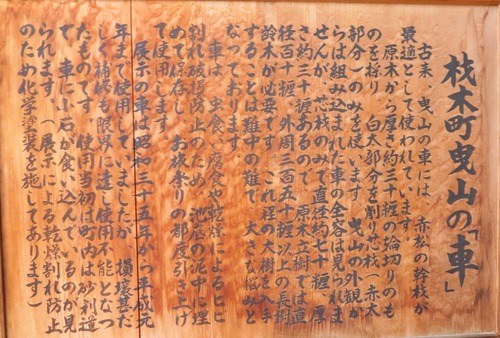 枝木町曳山の「車」
古来、曳山の車には、赤松の幹枝が
最適として使われています
原木から厚さ約三十糎の輪切りのも
のを採り、白太部分を削り芯枝(赤太
部分)のみを使います 曳山の外観か
らは組み込まれた車の全容は見られま
せんが、芯枝のみで直径約七十糎、厚
さ約三十糎あるので、原木立樹では直
径百十糎、外周三百五十糎以上の長樹
齢木が必要です。これ程の大樹を入手
することは難中の難で、大きな悩みと
なっております
車は、虫食い腐食や乾燥によるヒビ
割れ破損防止のため、池底の泥中に埋
めて保存し、お旅祭りの都度引き上げ
て使用します
展示の車は昭和三十五年から平成元
年まで使用していましたが、損壊甚だ
しく補修も限界に達し使用不能となっ
たものです。使用当初は町内は砂利道
で、車に小石が食い込んでいるのが見
られます。(展示による乾燥割れ防止
のため化学塗装を施してあります)